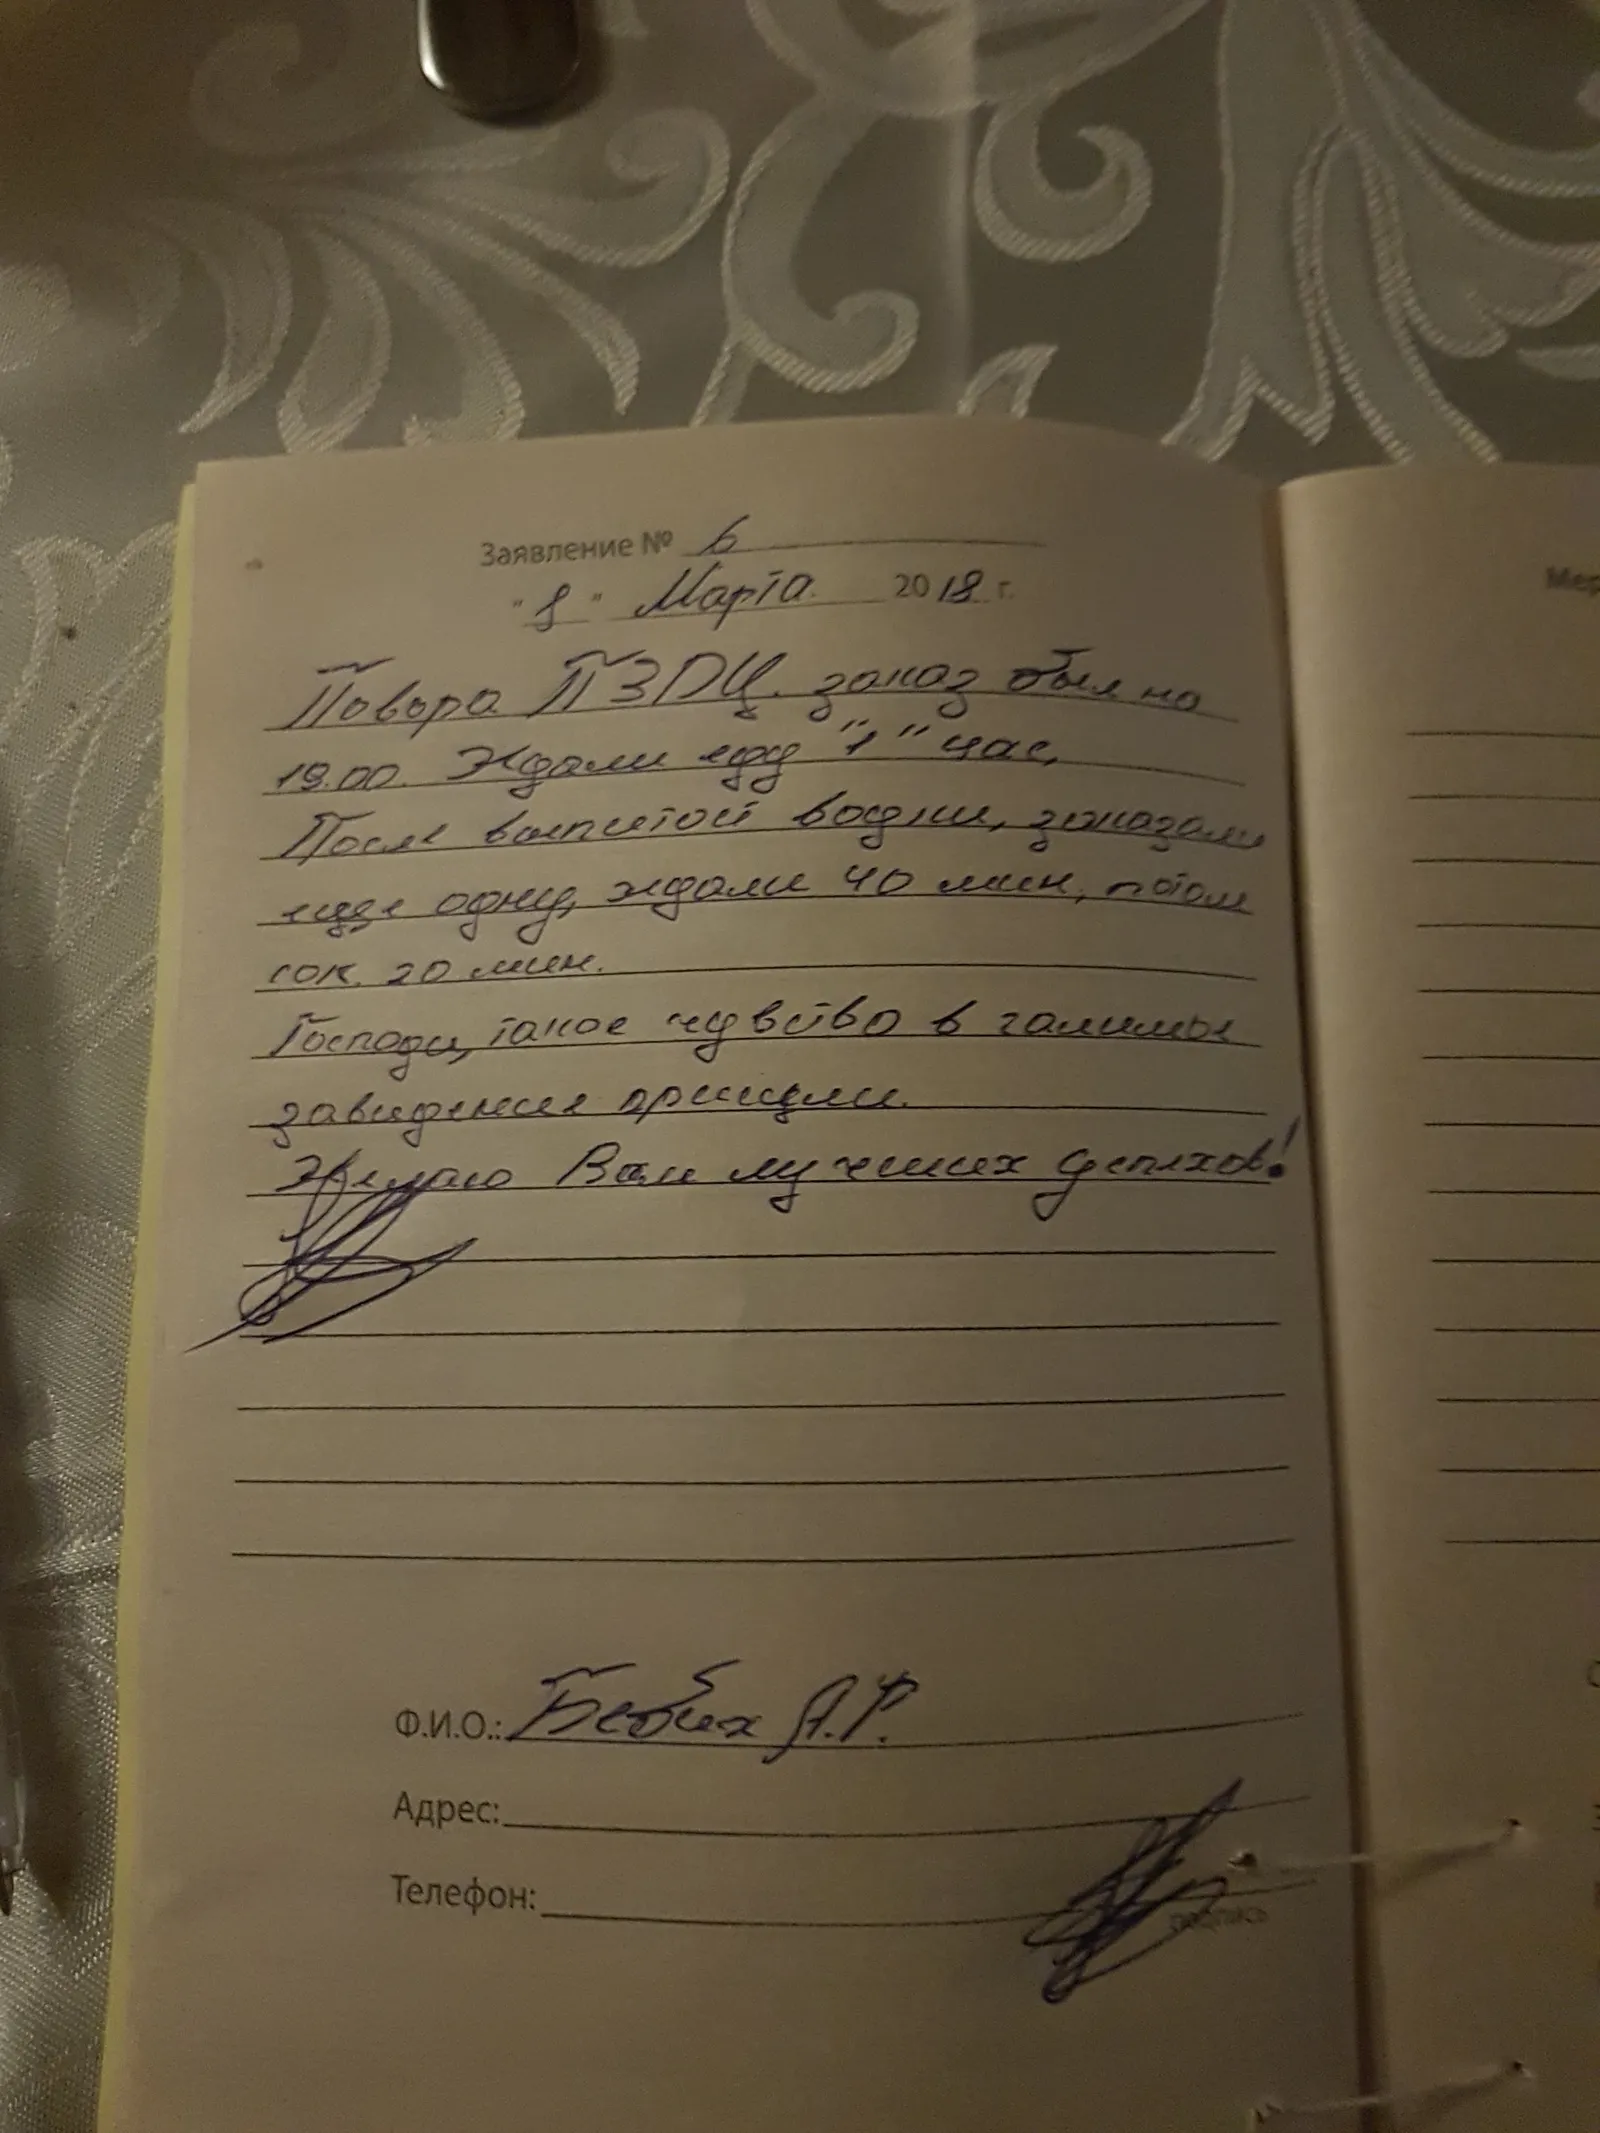 Заявление № 6
"8" Марта. 2018 г.
Повора ПЗДЦ. заказ был на
19.00. Ждали еду "1" час,
После выпитой водки, заказали
еще одну, ждали 40 мин, потом
сок. 20 мин.
Господи, такое чувство в
заведение пришли.
Желаю Вам лучших успехов!
Ф.И.О.: Бебих А.Р.
Адрес:
Телефон:
подпись
Мер